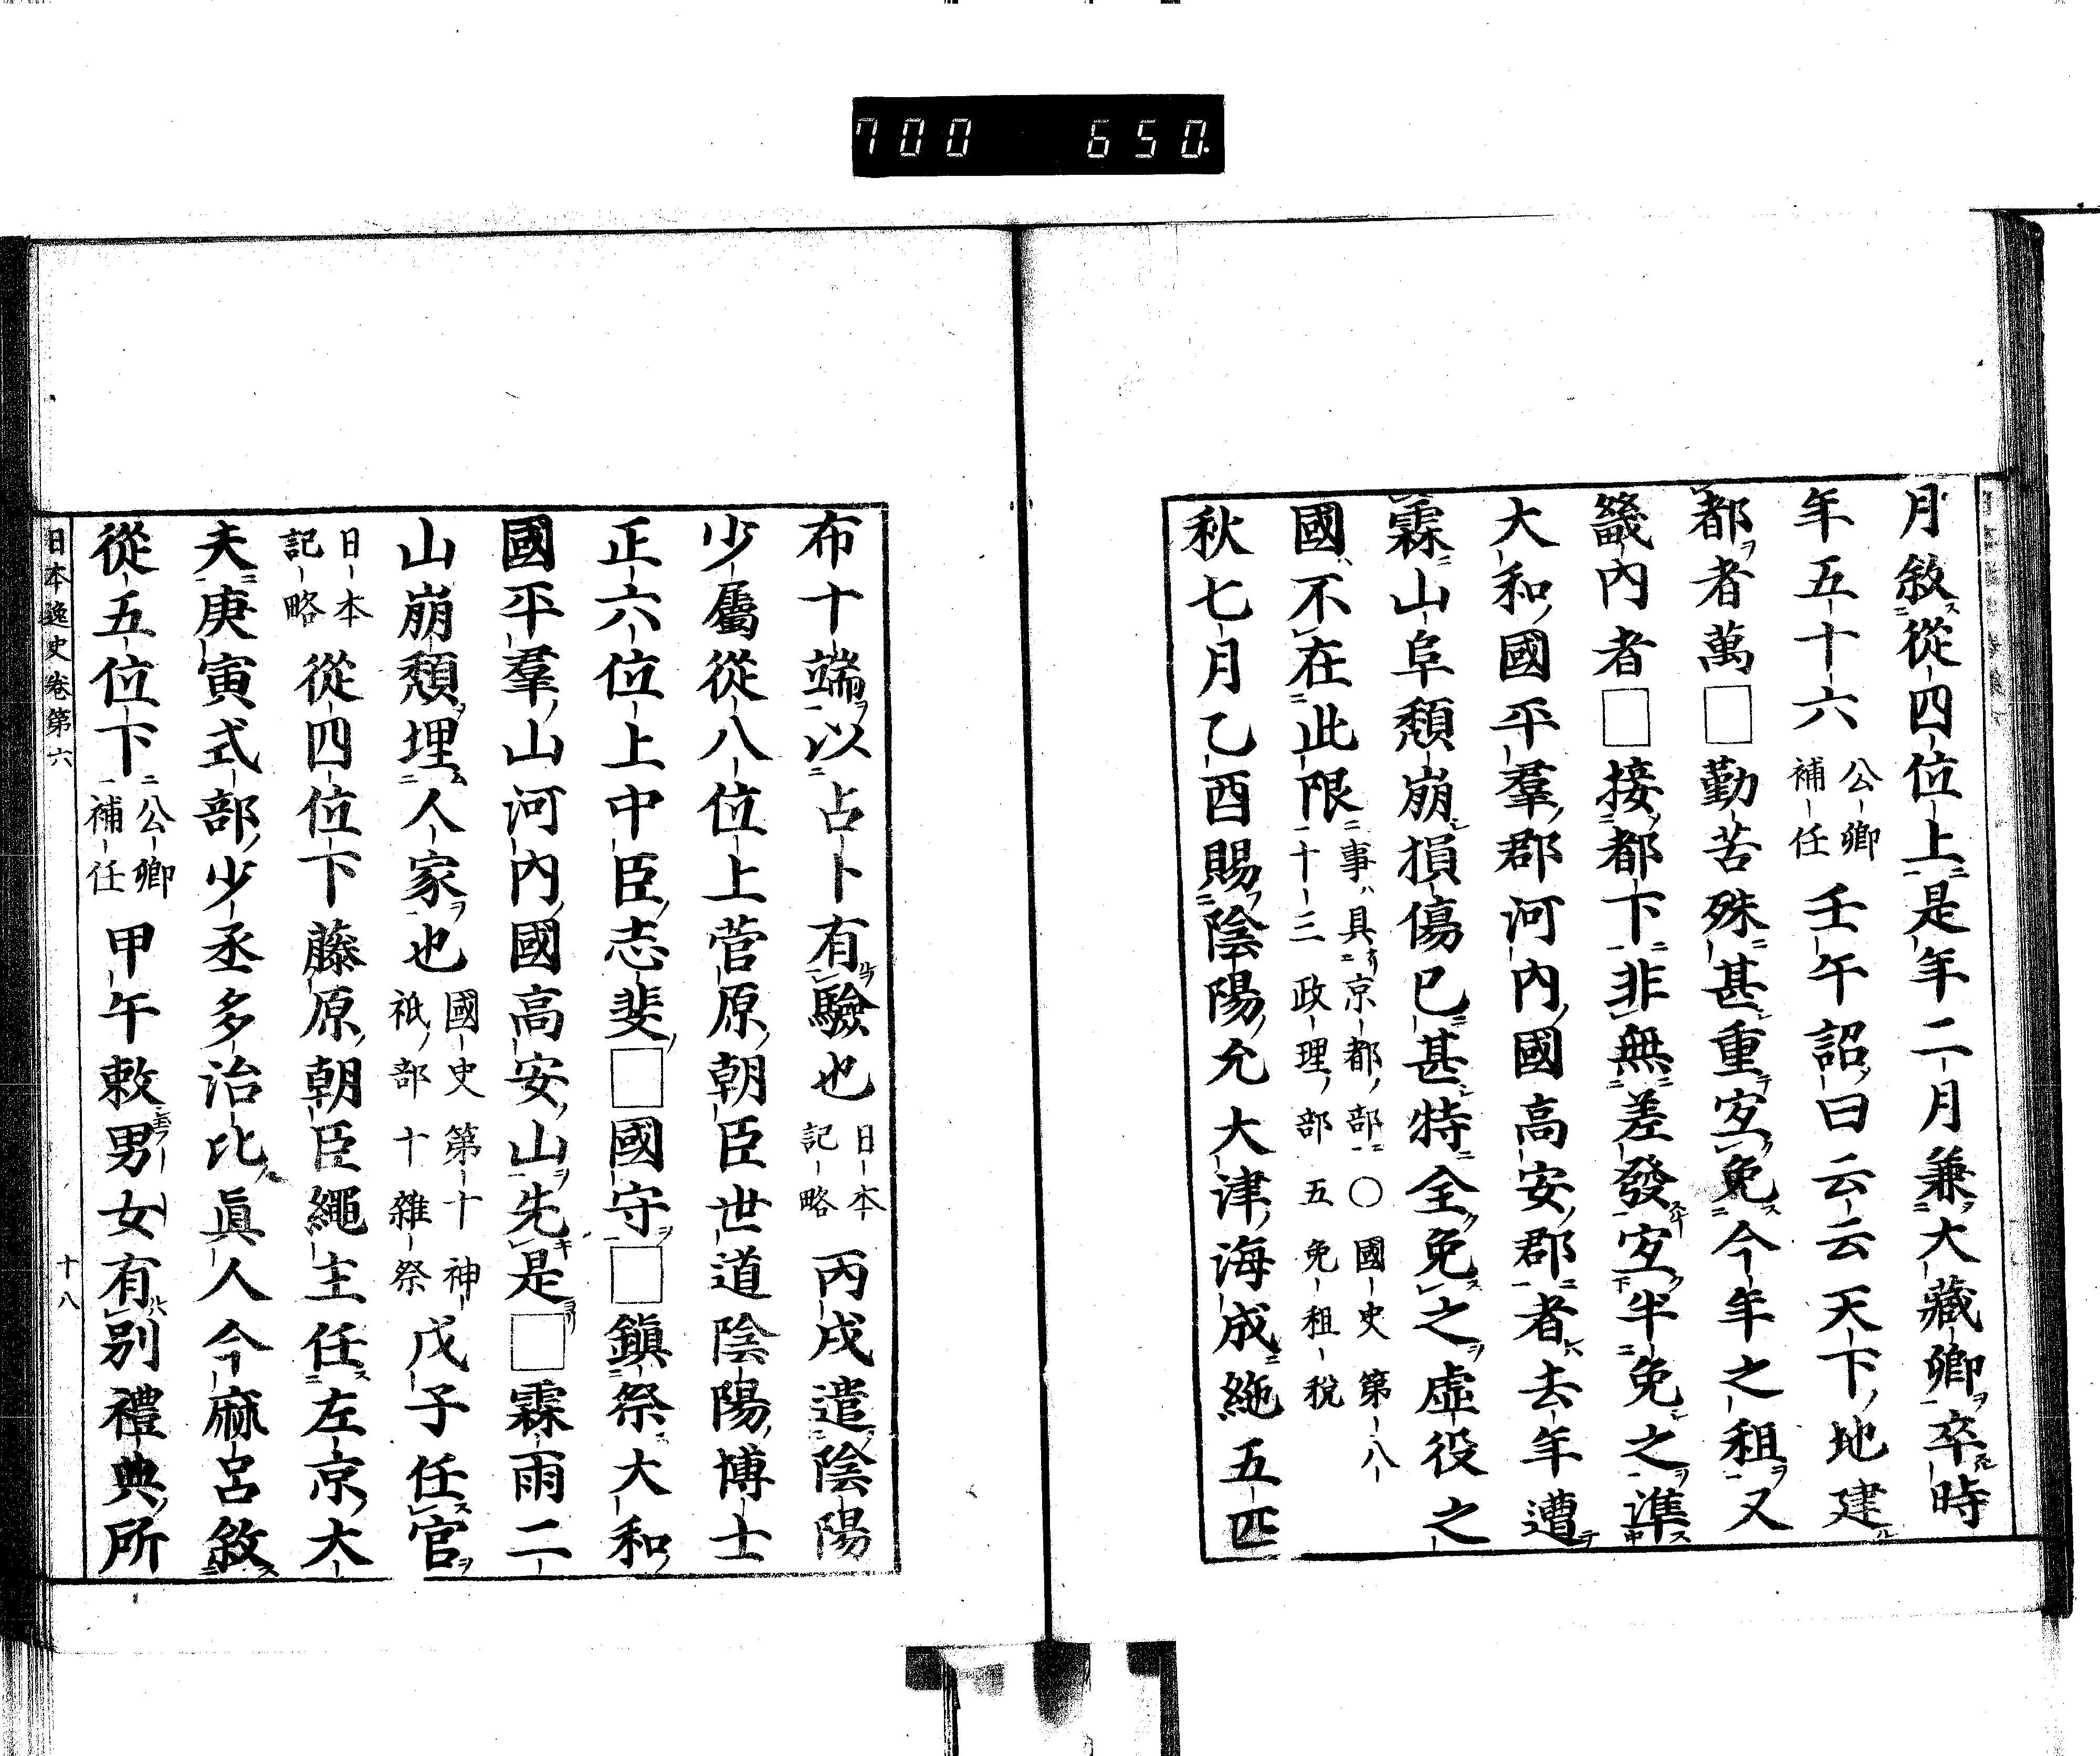 700 650.
月敘從四位上是年二月兼大藏卿卒時
年五十六公卿補任壬午詔曰云云天下地建
都者萬□勤苦殊甚重宜免今年之租又
畿內者□接都下非無差發宜半免之準
大和國平羣郡河內國高安郡者去年遭
霖山阜頽崩損傷已甚特全免之虛役之
國不在此限事具京都部○國史第八十三政理部五免租税
秋七月乙酉賜陰陽允大津海成絁五匹
布十端以占卜有驗也日本記略丙戌遣陰陽
少屬從八位上菅原朝臣世道陰陽博士
正六位上中臣志斐□國守□鎭祭大和
國平羣山河內國高安山先是□霖雨二
山崩頽埋人家也國史第十神祇部十雜祭戊子任官
日本記略從四位下藤原朝臣繩主任左京大
夫庚寅式部少丞多治比眞人今麻呂敘
從五位下公卿補任甲午敕男女有別禮典所
日本逸史卷第六 十八